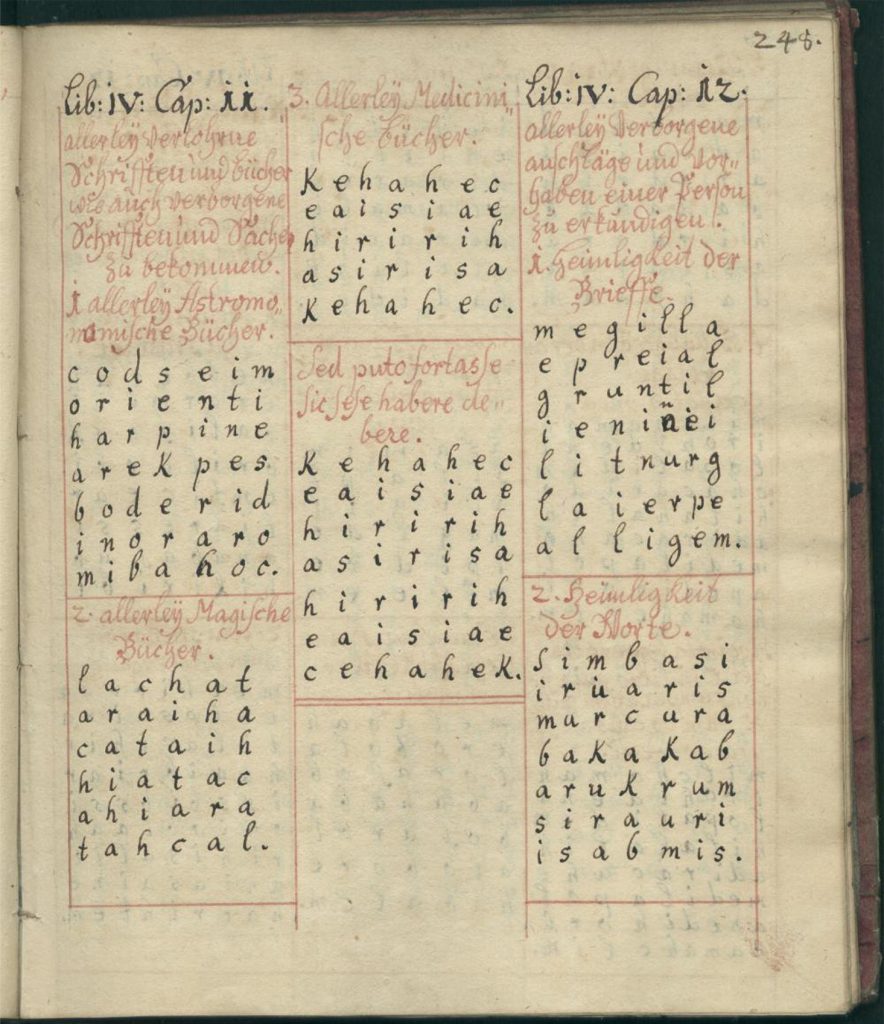 248.
Lib: IV: Cap: II.
allerleÿ Verlohrne
Schrifften und Bücher
wie auch verborgene
Schrifften und Sachen
zu bekommen.
1 allerleÿ Astromo„
nomische Bücher.
c o d s e i m
o r i e n t i
h a r p i n e
a r e K p e s
b o d e r i d
i n o r a r o
m i b a h o c.
2. allerleÿ Magische
Bücher.
l a c h a t
a r a i h a
c a t a i h
h i a t a c
a h i a r a
t a h c a l.
3. Allerleÿ Medicini„
sche Bücher.
K e h a h e c
e a i s i a e
h i r i r i h
a s i r i s a
K e h a h e c.
Sed puto fortasse
sic sese habere de„
bere.
K e h a h e c
e a i s i a e
h i r i r i h
a s i r i s a
h i r i r i h
e a i s i a e
c e h a h e K.
Lib: IV: Cap: 12.
allerleÿ Verborgene
anschläge und Vor„
haben einer Person
zu erkundigen.
1. Heimligkeit der
Brieffe.
m e g i l l a
e p r e i a l
g r u n t i l
i e n i n e i
l i t n u r g
l a i e r p e
a l l i g e m.
2. Heimligkeit
der Worte.
S i m b a s i
i r u a r i s
m a r c a r a
b a K a K a b
a r u K r u m
s i r a u r i
i s a b m i s.